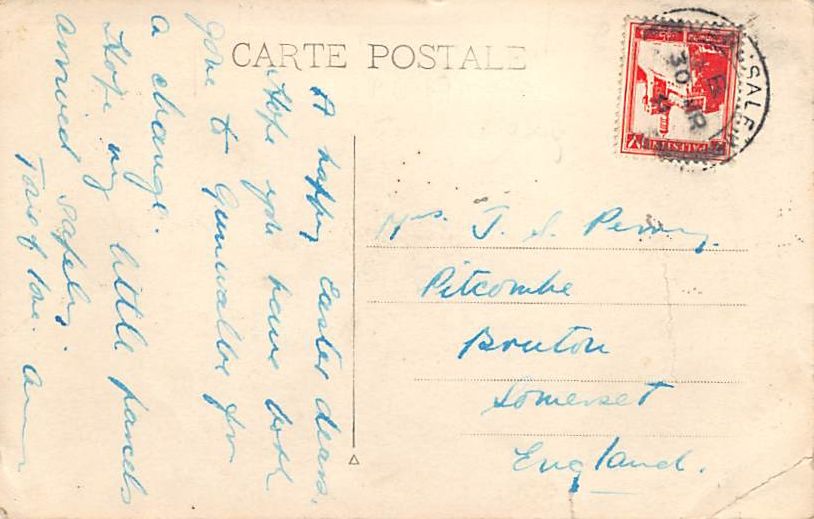 CARTE POSTALE
A happy Easter dears.
Hope you have both
gone to Gunwalloe for
a change.
Hope my little parcels
arrived safely.
Tons of love. Ann
PALESTINE
7
JERUSALEM
30 MR
Mrs. J. S. Perry.
Pitcombe
Bruton
Somerset
England.